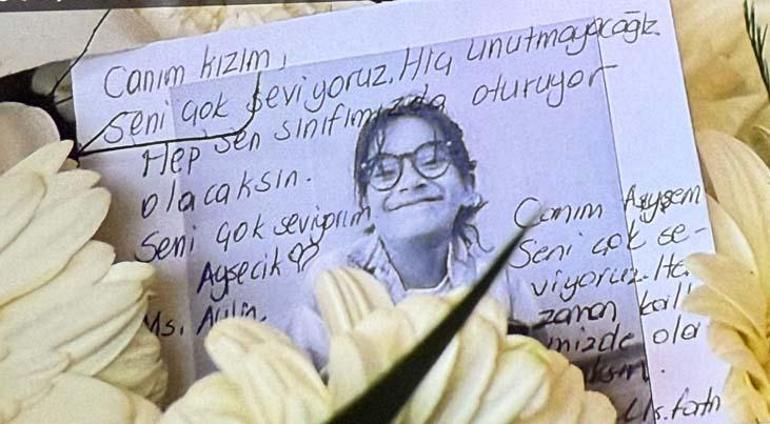 Canım kızım,
Seni çok seviyoruz. Hiç unutmayacağız.
Hep sen sınıfımızda oturuyor
olacaksın.
Seni çok seviyorum
Ayşecik ♡
Ms. Aylin
Canım Ayşem
Seni çok se-
viyoruz. He
zaman kal
mizde ola
ksın.